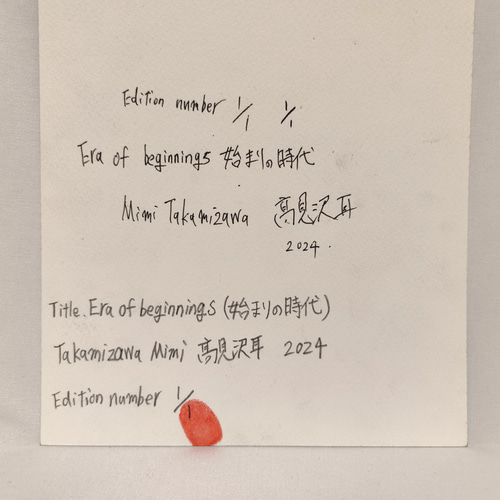 Edition number 1/1 1/1
Era of beginnings 始まりの時代
Mimi Takamizawa 高見沢耳
2024.
Title. Era of beginnings (始まりの時代)
Takamizawa Mimi 高見沢耳 2024
Edition number 1/1